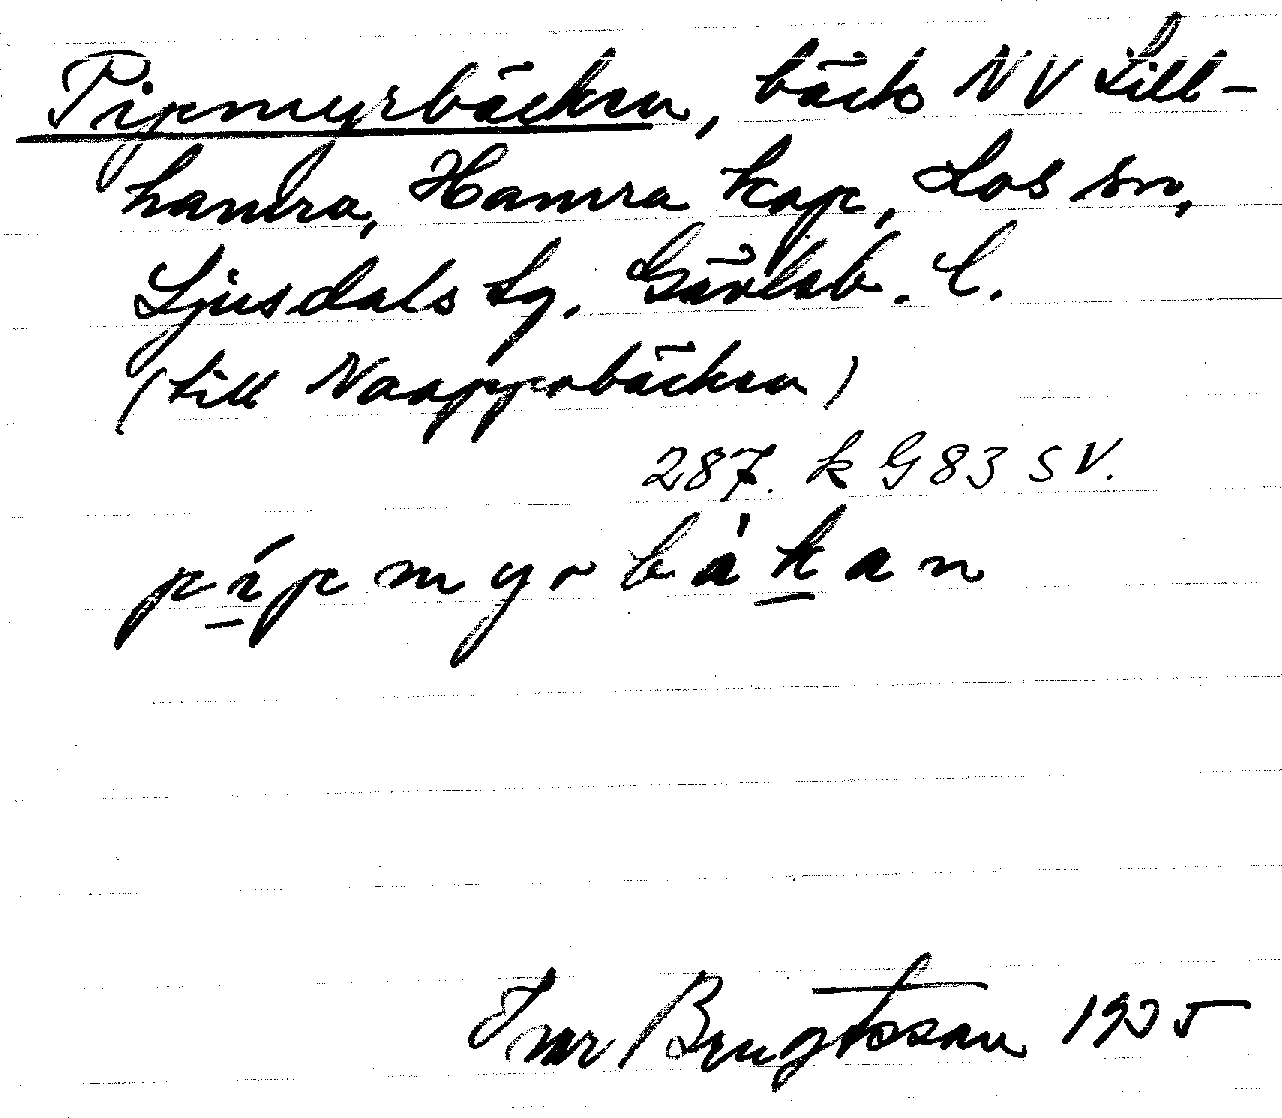 Pipmyrbäcken, bäck NV Lill-
hamra, Hamra kap, Los sn,
Ljusdals tg. Gävleb. l.
(till Noappobäcken)
287. k G 83 SV.
pípmyrbàkan
Bengtsson 1935